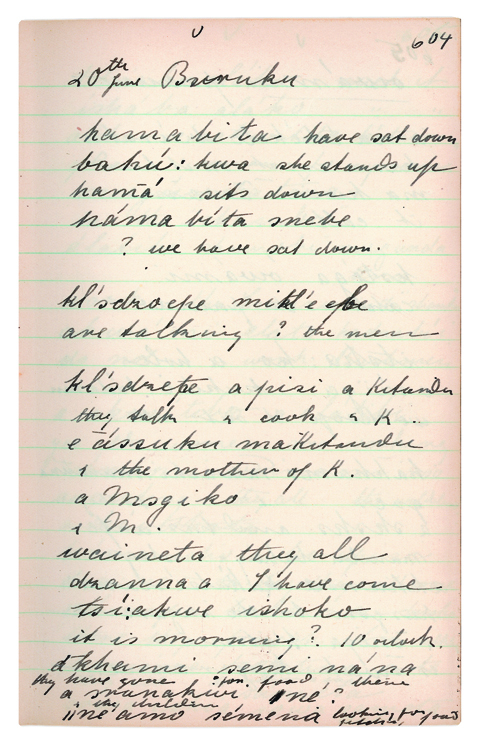 604
20th June Buruku
hamabita have sat down
bakú: kwa she stands up
hamā́ sits down
háma bíta mebe
? we have sat down.
kl'sdzoepe
are talking ? the men
kl'sdzeṭe a pisi a Kitandu
they talk " cook " K.
e āssuku maKitandu
" the mother of K.
a Msgiko
" M.
waineta they all
dzanna a I have come
tsíakwe ishoko
it is morning? 10 oclock.
akhami semi nána
they have gone for food there
a manakwi "né?
" the children
"né amo sémena looking for food